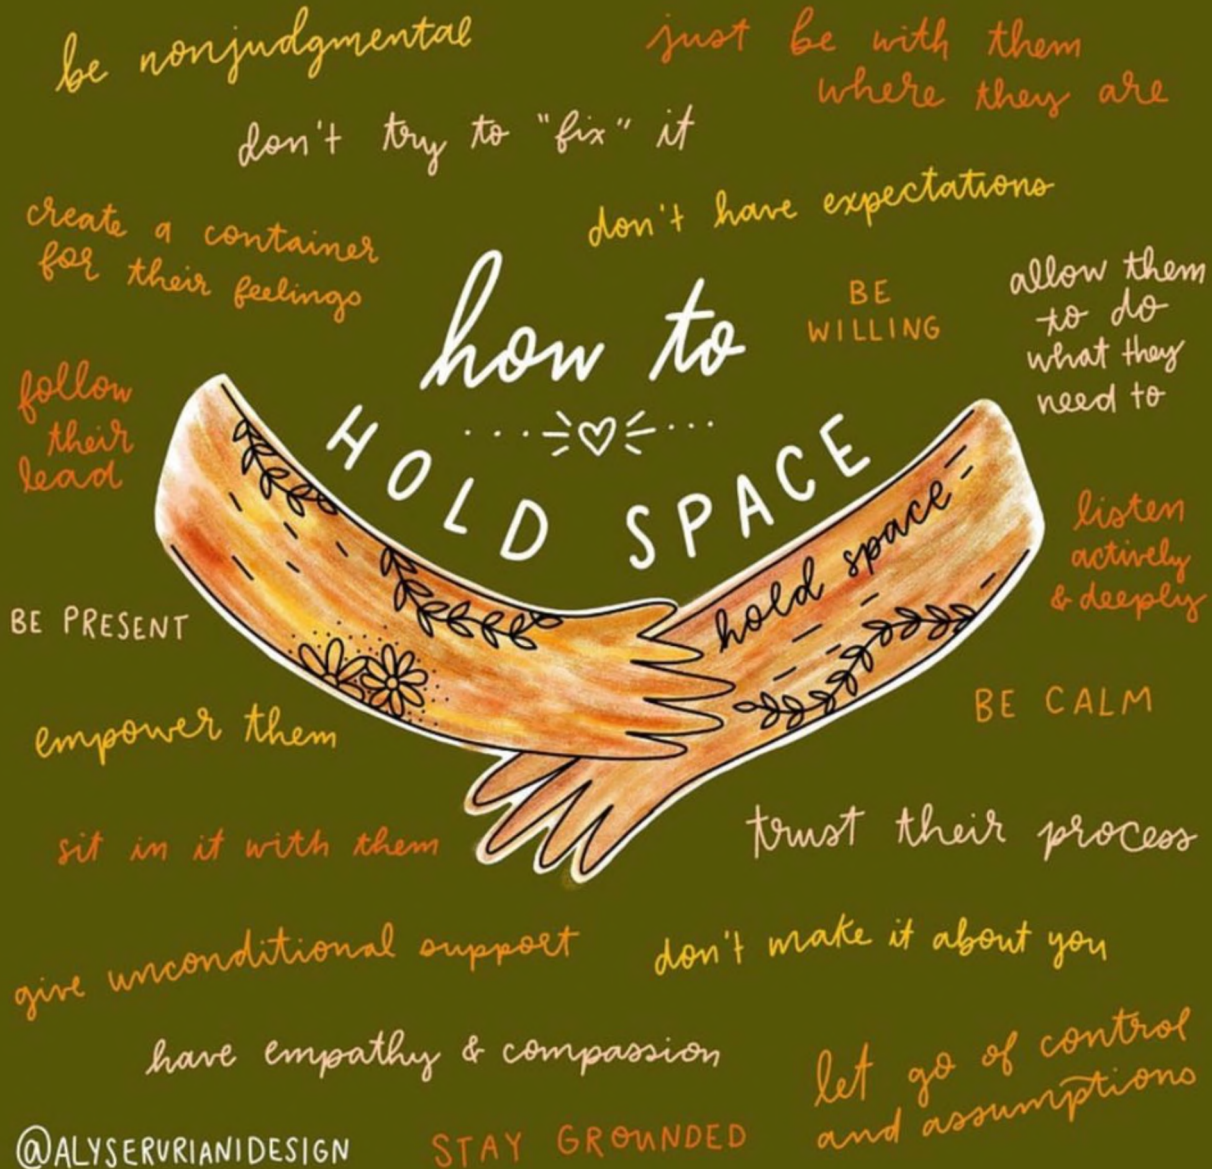 be nonjudgmental
just be with them
where they are
don't try to "fix" it
don't have expectations
create a container
for their feelings
how to
HOLD SPACE
BE
WILLING
allow them
to do
what they
need to
follow
their
lead
hold space
listen
actively
& deeply
BE PRESENT
BE CALM
empower them
sit in it with them
trust their process
give unconditional support
don't make it about you
have empathy & compassion
let go of control
and assumptions
@ALYSERURIANIDESIGN
STAY GROUNDED